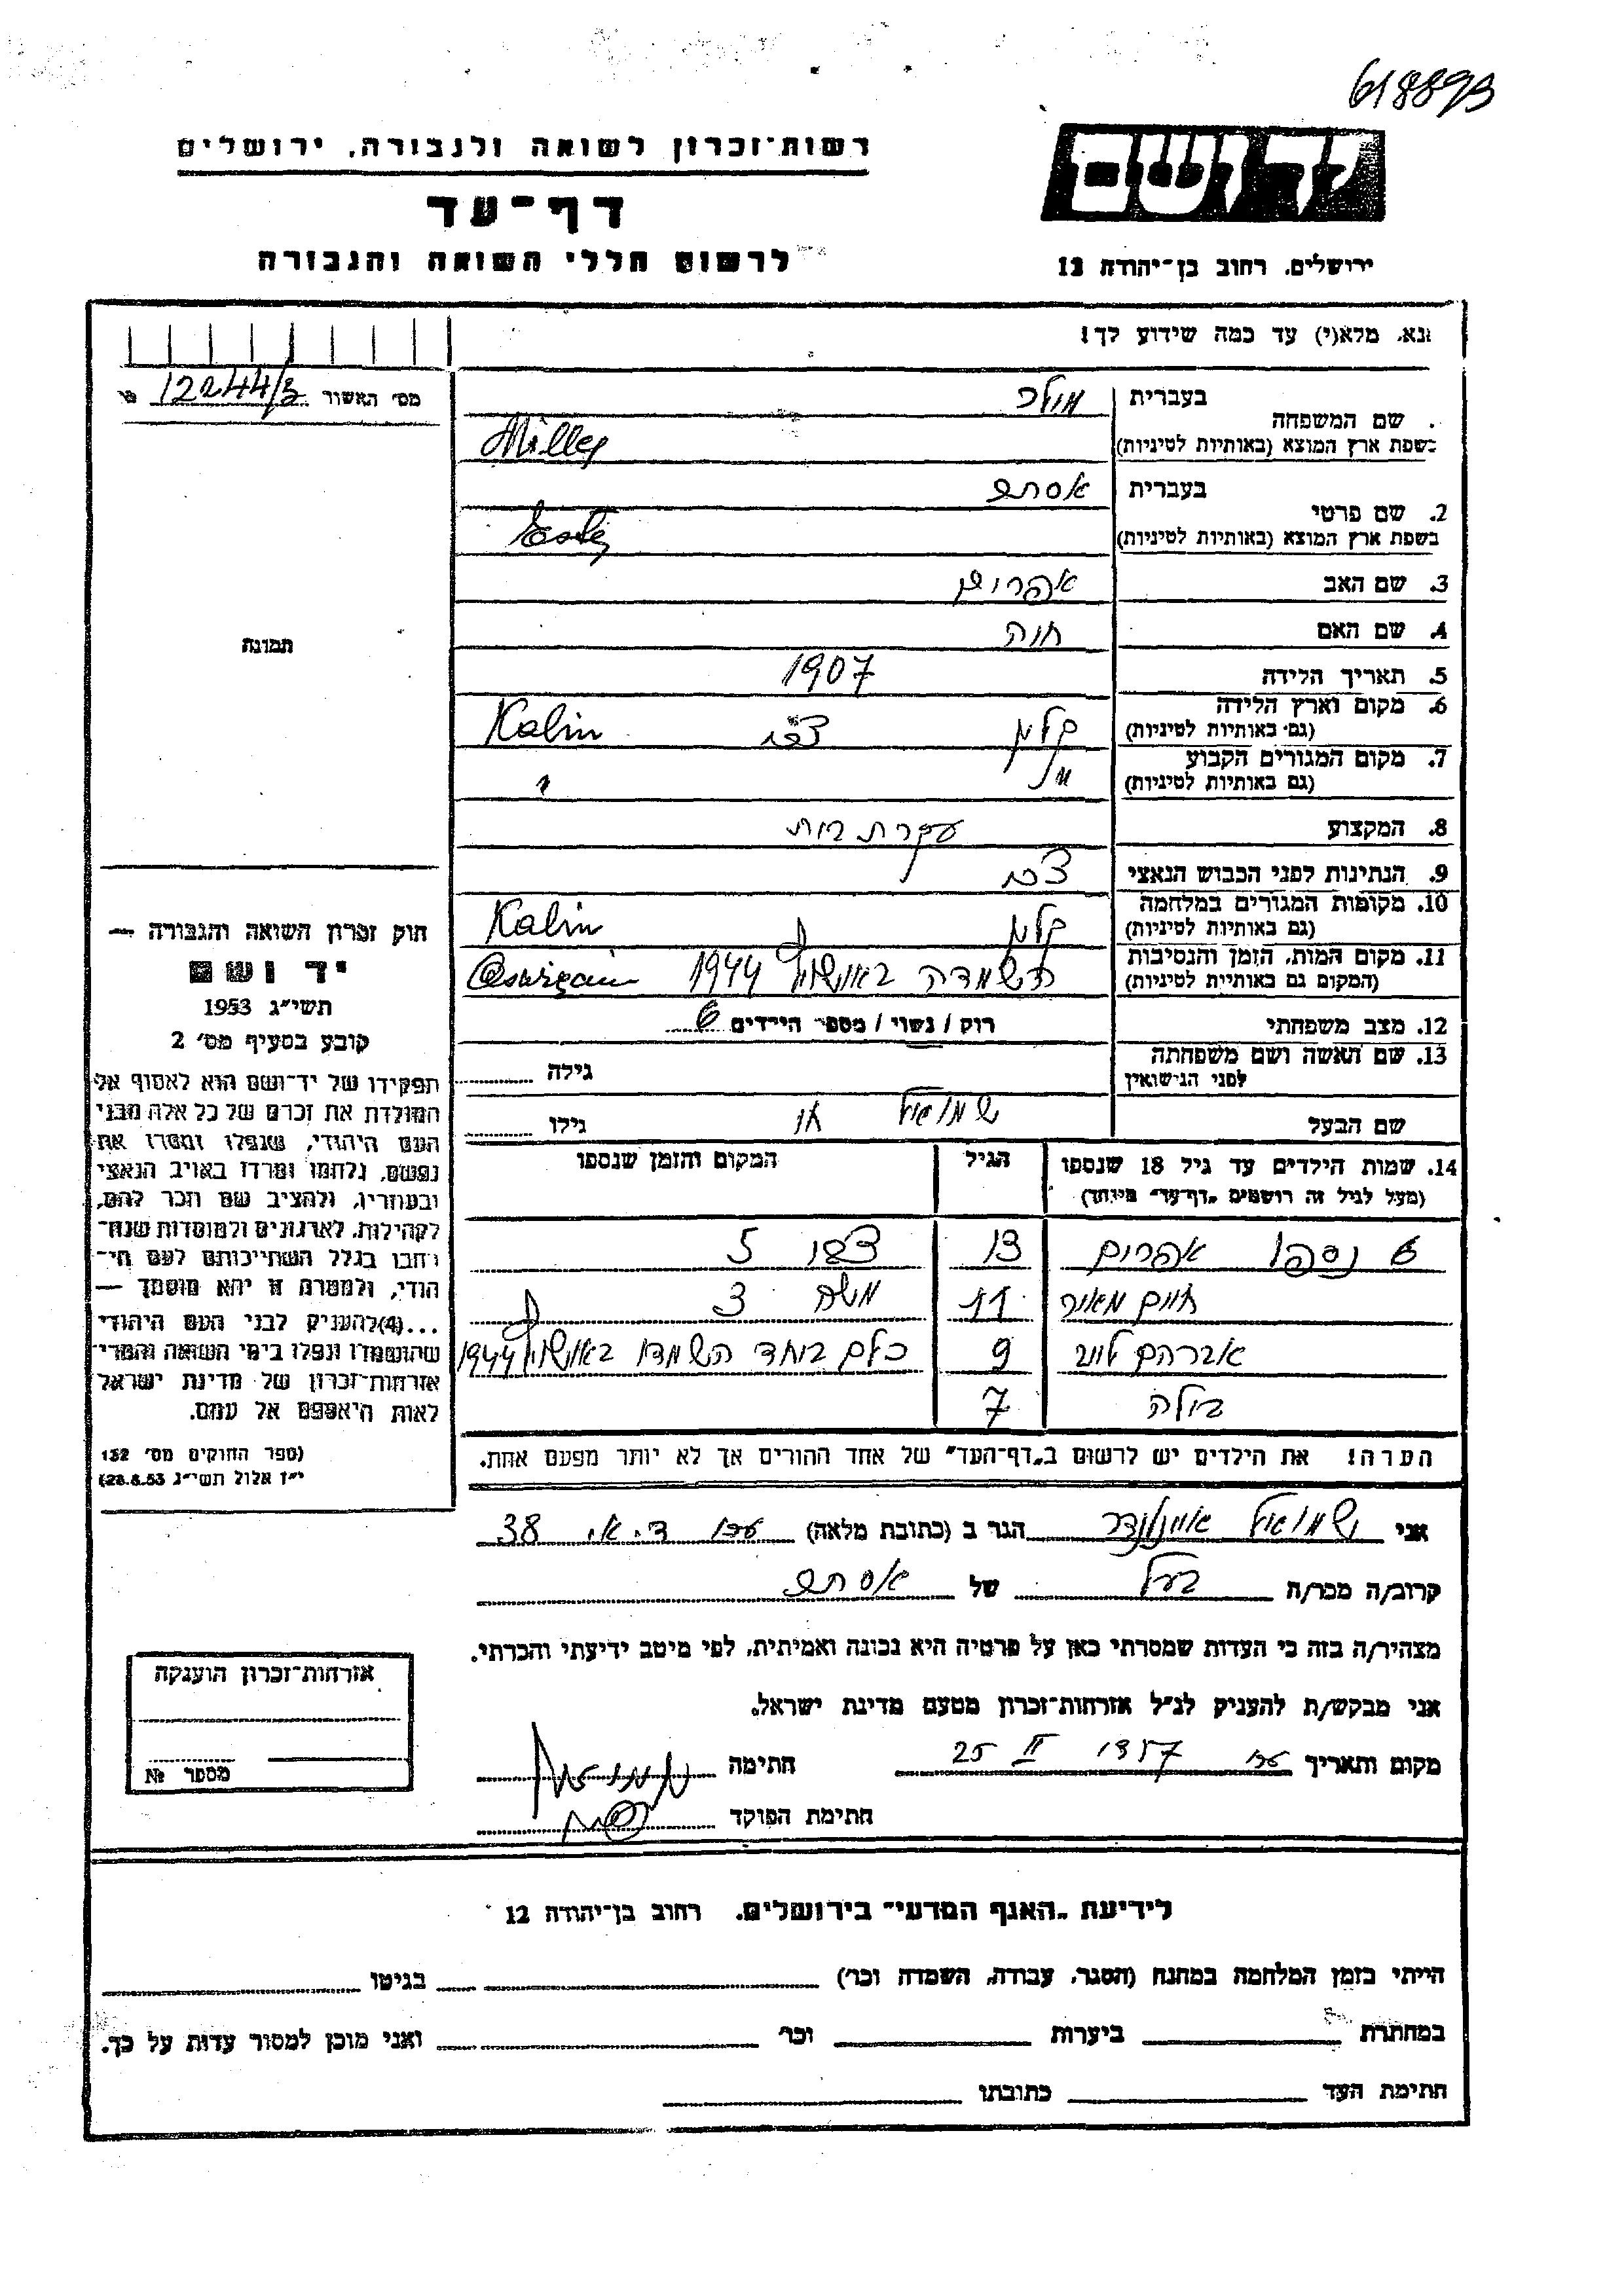 618893
רשות־זכרון לשואה ולגבורה, ירושלים
דף־עד
לרשום חללי השואה והגבורה
ידושם
ירושלים, רחוב בן־יהודה 12
נא, מלא(י) עד כמה שידוע לך!
מס׳ האשור 12244/3
שם המשפחה בעברית מילר
בשפת ארץ המוצא (באותיות לטיניות) Miller
2. שם פרטי בעברית אסתר
בשפת ארץ המוצא (באותיות לטיניות) Ester
3. שם האב אפרים
4. שם האם חנה
5. תאריך הלידה 1907
6. מקום וארץ הלידה (גם באותיות לטיניות) Kalin
7. מקום המגורים הקבוע (גם באותיות לטיניות) "
8. המקצוע עקרת בית
9. הנתינות לפני הכבוש הנאצי
10. מקומות המגורים במלחמה (גם באותיות לטיניות) Kalin
11. מקום המות, הזמן והנסיבות (המקום גם באותיות לטיניות) השמדה באושויץ 1944
12. מצב משפחתי רוק / נשוי / מספר הילדים 6
13. שם האשה ושם משפחתה לפני הנישואין גילה
שם הבעל שמואל חי גילו
14. שמות הילדים עד גיל 18 שנספו הגיל המקום והזמן שנספו
(מעל לגיל זה רושמים „דף־עד״ מיוחד)
6 נספו אפרים 13 5
חיים מאיר 11 משה 3
אברהם לייב 9 כלם ביחד השמדו באושויץ 1944
בילה 7
הערה! את הילדים יש לרשום ב„דף־העד״ של אחד ההורים אך לא יותר מפעם אחת.
תמונה
חוק זכרון השואה והגבורה —
יד ושם
תשי״ג 1953
קובע בסעיף מס׳ 2
תפקידו של יד־ושם הוא לאסוף אל
המולדת את זכרם של כל אלה מבני
העם היהודי, שנפלו ומסרו את
נפשם, נלחמו ומרדו באויב הנאצי
ובעוזריו, ולהציב שם וזכר להם,
לקהילות, לארגונים ולמוסדות שנח־
רבו בגלל השתייכותם לעם הי־
הודי, ולמטרה זו יהא מוסמך —
...(4) להעניק לבני העם היהודי
שהושמדו ונפלו בימי השואה והמרי־
אזרחות־זכרון של מדינת ישראל
לאות היאספם אל עמם.
(ספר החוקים מס׳ 132
י״ז אלול תשי״ג 28.8.53)
אני שמואל הגר ב (כתובת מלאה) עכו ד. א. 38
קרוב/ה מכר/ה בעל של אסתר
מצהיר/ה בזה כי העדות שמסרתי כאן על פרטיה היא נכונה ואמיתית, לפי מיטב ידיעתי והכרתי.
אני מבקש/ת להעניק לנ״ל אזרחות־זכרון מטעם מדינת ישראל.
מקום ותאריך עכו 1957 II 25 חתימה
חתימת הפוקד
אזרחות־זכרון הוענקה
מספר №
לידיעת „האגף המדעי״ בירושלים, רחוב בן־יהודה 12
הייתי בזמן המלחמה במחנה (הסגר, עבודה, השמדה וכר׳) בגיטו
במחתרת ביערות וכר׳ ואני מוכן למסור עדות על כך.
חתימת העד כתובתו